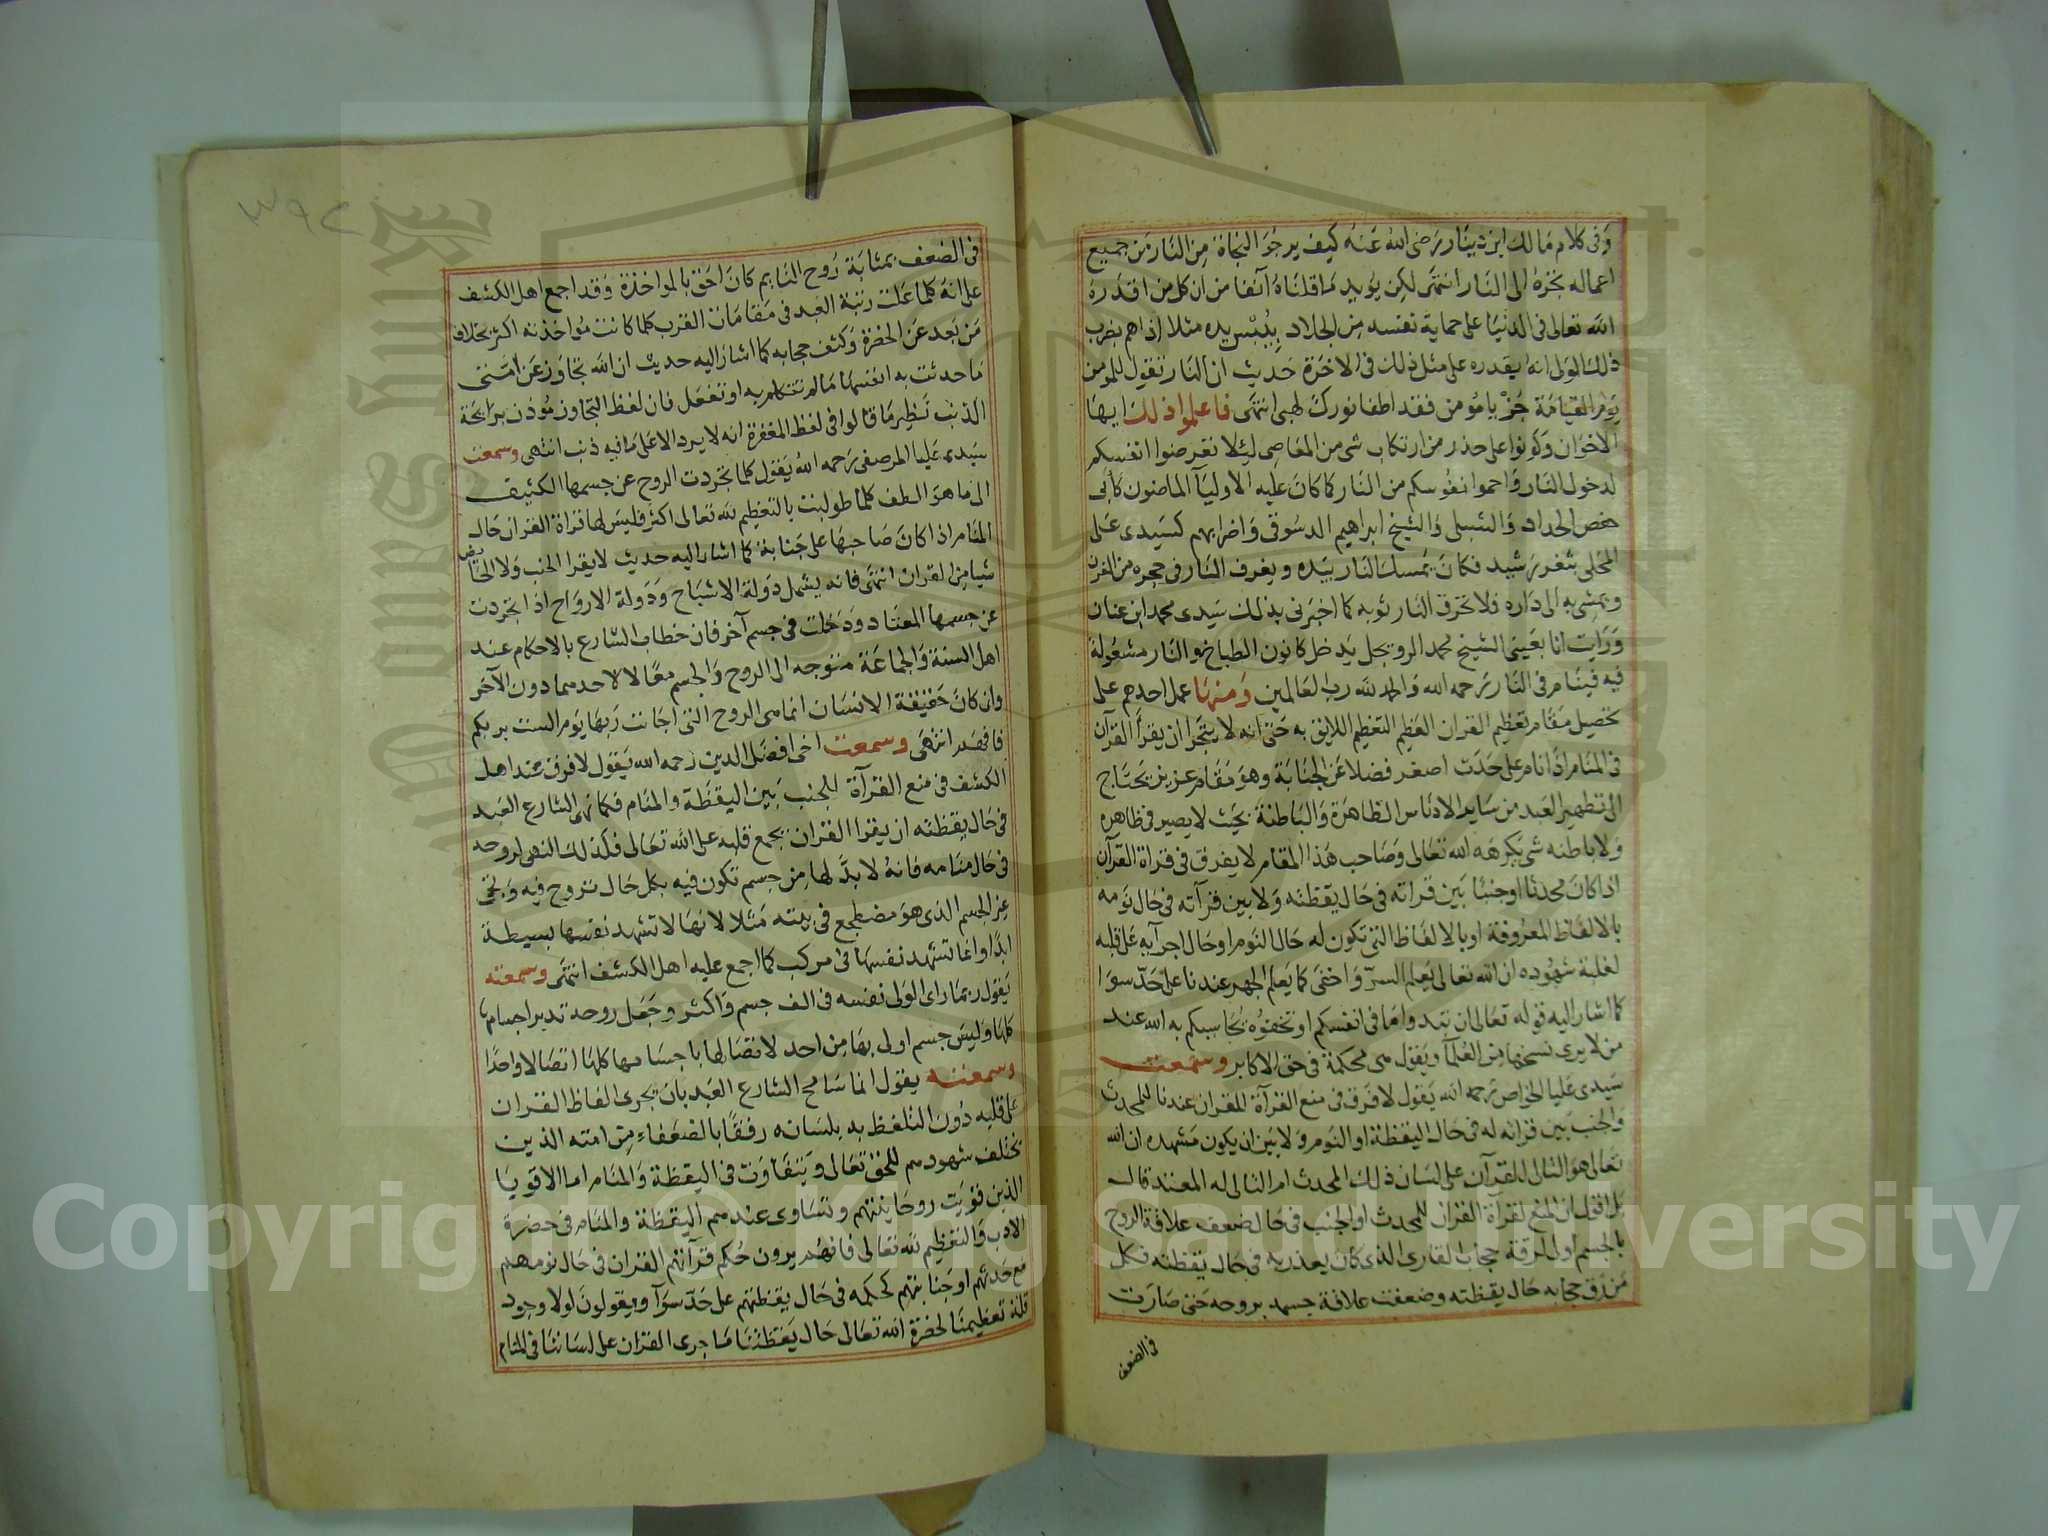 وفي كلام مالك ابن دينار رضي الله عنه كيف يرجوا النجاة من النار من جميع
اعماله تجره الى النار انتهى لكن يويد ما قلناه آنفا من ان كل من اقدره
الله تعالى في الدنيا على حماية نفسه من الجلاد مثلا اذا هم بضرب
ذلك الولي انه يقدره على مثل ذلك في الاخرة حديث ان النار تقول للمومن
يوم القيامة جز يا مومن فقد اطفا نورك لهبي انتهى فاعلموا ذلك ايها
الاخوان وكونوا على حذر من ارتكاب شي من المعاصي ليلا تعرضوا انفسكم
لدخول النار واحموا نفوسكم من النار كما كان عليه الاوليآ الماضون كابي
حفص الحداد والشبلي والشيخ ابراهيم الدسوقي واضرابهم كسيدي على
المحلى بثغر رشيد فكان يمسك النار بيده ويغرف النار في حجره من الفرن
ويمشي به الى داره فلا تحرق النار ثوبه كما اخبرني بذلك سيدي محمد ابن عنان
ورايت انا بعيني الشيخ محمد الرويجل يدخل كانون الطباخ والنار مشعولة
فيه فينام في النار رحمه الله والحمد لله رب العالمين ومنها عمل احدهم على
تحصيل مقام تعظيم القران العظيم التعظيم اللايق به حتى انه لا يتجرا ان يقرأ القرآن
في المنام اذا نام على حدث اصغر فضلا عن الجنابة وهو مقام عزيز يحتاج
الى تطهير العبد من ساير الادناس الظاهرة والباطنة بحيث لا يصير في ظاهره
ولا باطنه شي يكرهه الله تعالى وصاحب هذا المقام لا يفرق في قراة القرآن
اذا كان محدثا او جنبا بين قراته في حال يقظته ولا بين قرآته في حال نومه
بالالفاظ المعروفة او بالالفاظ التي تكون له حال النوم او حال اجرآيه على قلبه
لغلبة شهوده ان الله تعالى يعلم السر واخفى كما يعلم الجهر عندنا على حد سوا
كما اشار اليه قوله تعالى ان تبدوا ما في انفسكم او تخفوه يحاسبكم به الله عند
من لا يرى نسخها من العلمآ ويقول هي محكمة في حق الاكابر وسمعت
سيدي عليا الخواص رحمه الله يقول لا فرق في منع القرآة للقران عندنا للمحدث
والجنب بين قراته له في حال اليقظة او النوم ولا بين ان يكون مشهده ان الله
تعالى هو التالي للقرآن على لسان ذلك المحدث ام التالي له العبد قال
بل اقول ان المنع لقرآة القران للمحدث او الجنب في حال ضعف علاقة الروح
بالجسم اولى لرقة حجاب القاري الذي كان يعذر به في حال يقظته فكل
من رق حجابه حال يقظته وضعفت علاقة جسمه بروحه حتى صارت
في الضعف
٣٩٢
في الضعف بمثابة روح النايم كان احق بالمواخذة وقد اجمع اهل الكشف
على انه كلما علت رتبة العبد في مقامات القرب كلما كانت مواخذته اكثر بخلاف
من بعد عن الحضرة وكثف حجابه كما اشار اليه حديث ان الله تجاوز عن امتي
ما حدثت به انفسها ما لم تتكلم به او تفعل فان لفظ التجاوز موذن برايحة
الذنب نظير ما قالوا في لفظ المغفرة انه لا يرد الا على ما فيه ذنب انتهى وسمعت
سيدي عليا المرصفي رحمه الله يقول كلما تجردت الروح عن جسمها الكثيف
الى ما هو الطف كلما طولبت بالتعظيم لله تعالى اكثر فليس لها قراة القران حال
المنام اذا كان صاحبها على جنابة كما اشار اليه حديث لا يقرا الجنب ولا الحايض
شيا من القران انتهى فانه يشمل دولة الاشباح ودولة الارواح اذا تجردت
عن جسمها المعتاد ودخلت في جسم آخر فان خطاب الشارع بالاحكام عند
اهل السنة والجماعة متوجه الى الروح والجسم معًا لا لاحدهما دون الآخر
وان كان حقيقة الانسان انما هي الروح التي اجابت ربها يوم الست بربكم
فافهم انتهى وسمعت اخي افضل الدين رحمه الله يقول لا فرق عند اهل
الكشف في منع القرآة للجنب بين اليقظة والمنام فكما نهى الشارع العبد
في حال يقظته ان يقرا القران بجمع قلبه على الله تعالى فكذلك النهي لروحه
في حال منامه فانه لا بد لها من جسم تكون فيه بكل حال تروح فيه وتجي
عن الجسم الذي هو مضطجع في بيته مثلا لانها لا تشهد نفسها بسيطة
ابدا وانما تشهد نفسها في مركب كما اجمع عليه اهل الكشف انتهى وسمعته
يقول ربما راى الولي نفسه في الف جسم واكثر وجعل روحه تدير اجسامها
كلها وليس جسم اولى بها من احد لاتصالها باجسامها كلها اتصالا واحدًا
وسمعته يقول انما سامح الشارع العبد بان يجري الفاظ القران
على قلبه دون التلفظ به بلسانه رفقًا بالضعفاء من امته الذين
تختلف شهودهم للحق تعالى ويتفاوت في اليقظة والمنام اما الاقويا
الذين قويت روحانيتهم وتساوى عندهم اليقظة والمنام في حضرة
الادب والتعظيم لله تعالى فانهم يرون حكم قرآتهم القران في حال نومهم
مع حدثهم او جنابتهم كحكمه في حال يقظتهم على حد سوآ ويقولون لولا وجود
قلة تعظيمنا لحضرة الله تعالى حال يقظتنا ما جرى القران على لساننا في المنام
Copyright © King Saud University